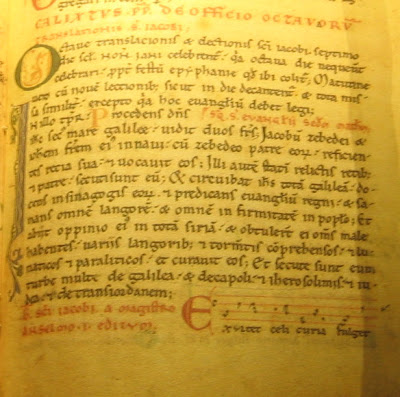 CALIXTUS PP. DE OFFICIO OCTAVARŪ
TRANSLATIONIS S. IACOBI;
Octave translacionis & electionis sci iacobi septimo
die scl. NON IANI celebrent. qa octava die nequeunt
celebrari. ppt festū epyphanie qd ibi colit; Matutine
uero cū nove lectionib; sicut in die decantent. & tota mis
sa similit. excepto qa hoc evangliū debet legi;
IN illo tpr. Procedens dns
ihc sec mare galilee. vidit duos frs; Iacobū zebedei &
iohem frem ei in navi. cū zebedeo patre eor. reficien
tes retia sua. & vocavit eos; Illi autē statī relictis retib;
& patre. secuti sunt eū; Et circuibat ihs totā galileā. do
cens in sinagogis eor. & predicans evangliū regni. & sa
nans omnē langorē. & omnē in firmitatē in poplo; Et
abiit oppinio ei in totā siriā. & obtulert ei oms male
habentes. variis langorib; & tormtis cōprehensos. & lu
naticos & paraliticos. et curavit eos; Et secute sunt eum
turbe multe de galilea. & decapoli. & iherosolimis. & iu
dea. & de transiordanem;
S. sci iacobi. a magistro
anselmo. editum.
Exultet celi curia fulget